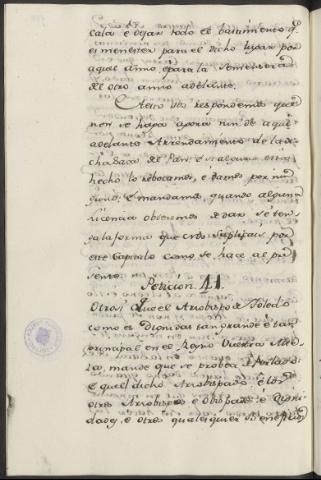 calar e dejar todo el bastimento qᵉ
es menester para el dicho lugar por
aquel anno, e para la sementera
del otro anno adelante.
A esto vos respondemos que
non se haga agora nin de aqui
adelante Arrendamiento de la di-
cha saca del Pan, e si alguno es
hecho lo rebocamos, e damos por nin-
guno; e mandamos, quando algun
licencia obieremos de dar se ten-
ga la forma que nos suplicais por
este Capitulo como se hace al pre-
sente.
Peticion 41.
Otrosi Que el Arzobispo de Toledo
como es Dignidad tan grande e tan
principal en el Regno Vuestra Alte-
za, mande que se probea
e quel dicho Arzobispado e los
otros Arzobispos e Obispados e Digni-
dades, e otros qualesquier Beneficios